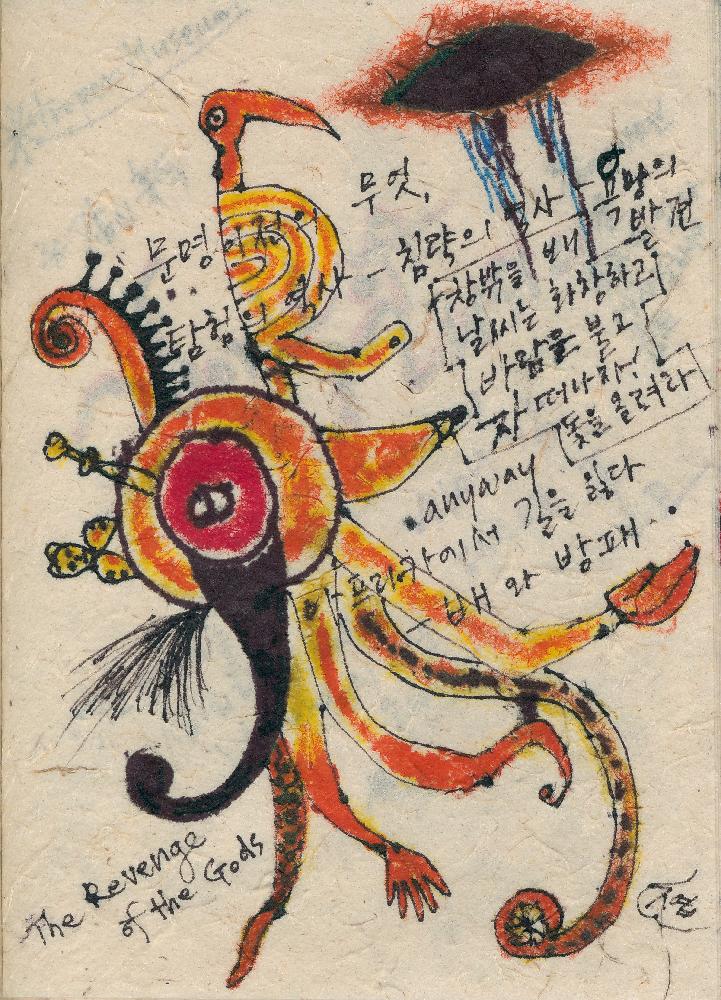 무엇,
문명 이전의 침략의 역사 - 욕망의 발견
탐험의 역사
창밖을 배
날씨는 화창하고
바람은 불고
자 떠나자!
돛을 올려라
.anyway
아프리카에서 길을 잃다
- 배 와 방패.
The Revenge
of the Gods